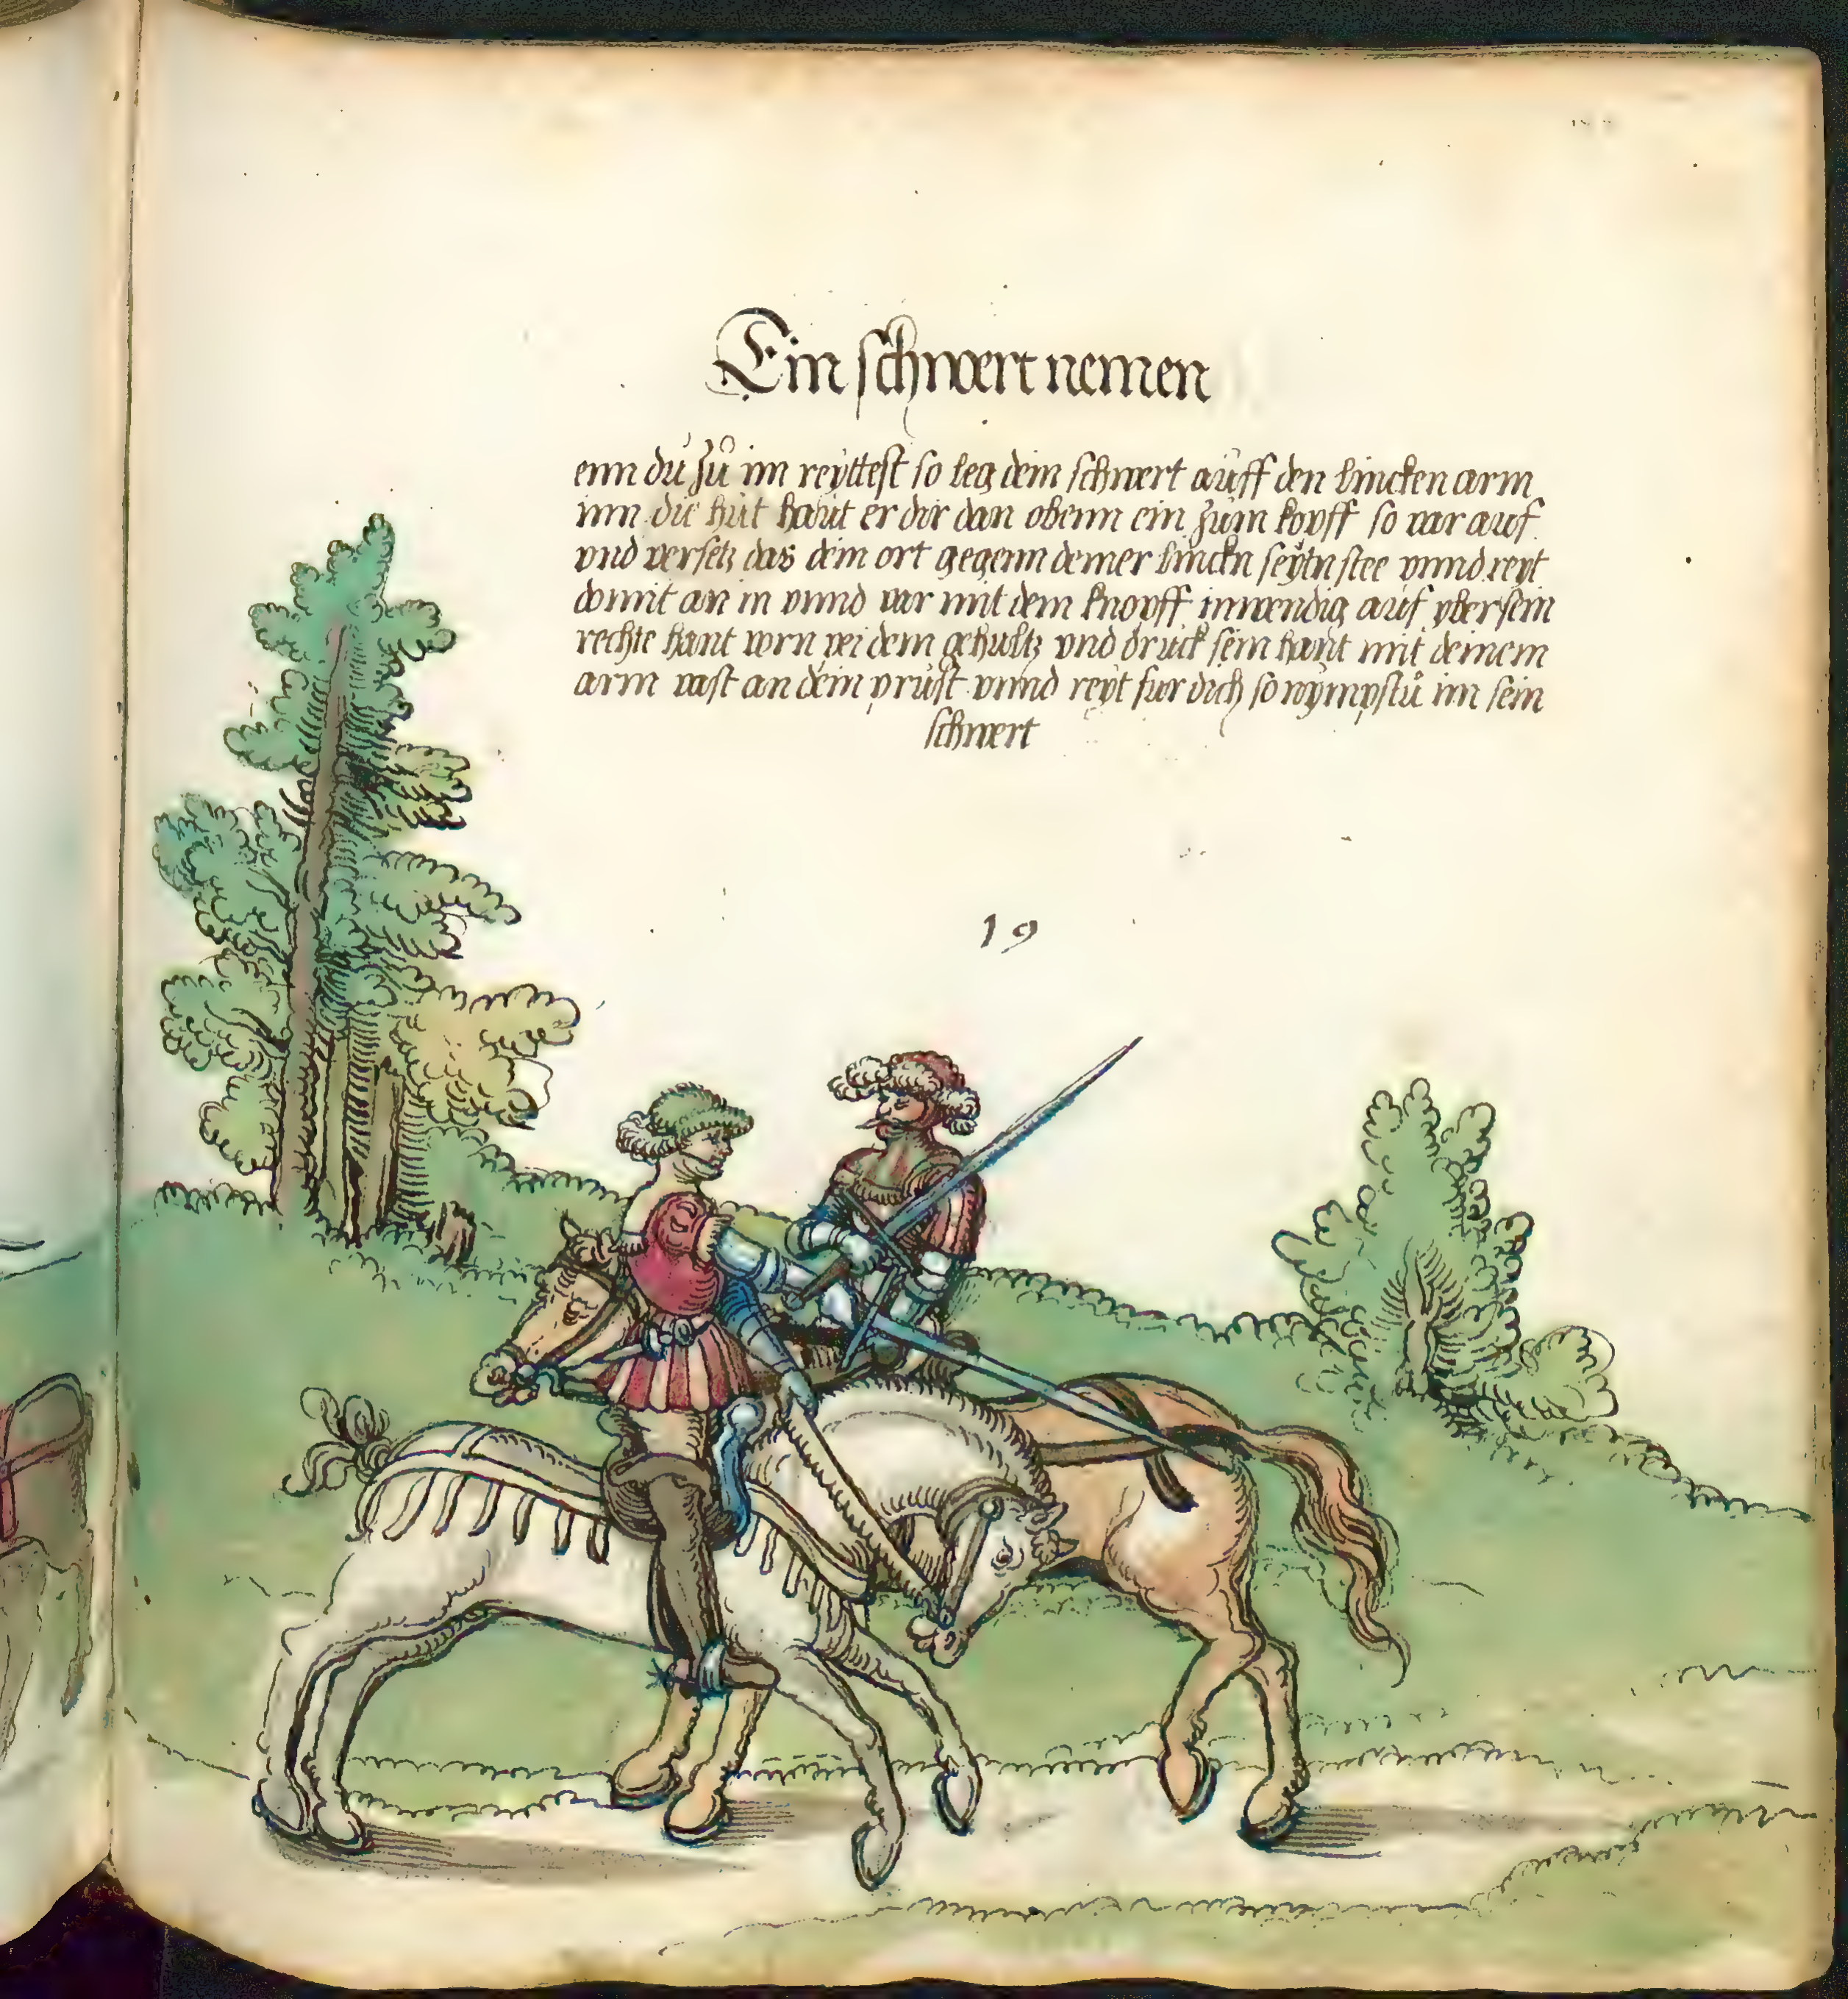 Ein schwert nemen
enn du zů im reyttest so leg dein schwert auff den lincken arm
inn die hut haut er dir dan obenn ein zum kopff so var auf
vnd versetz das dein ort gegenn deiner linckn seytn stee vnnd reyt
domit an in vnnd var mit dem knopff inwendig auf vber sein
rechte hant vorn pei dem gehultz vnd druck sein hant mit deinem
arm vast an dein prust vnnd reyt fur dich so nympstu im sein
schwert
19